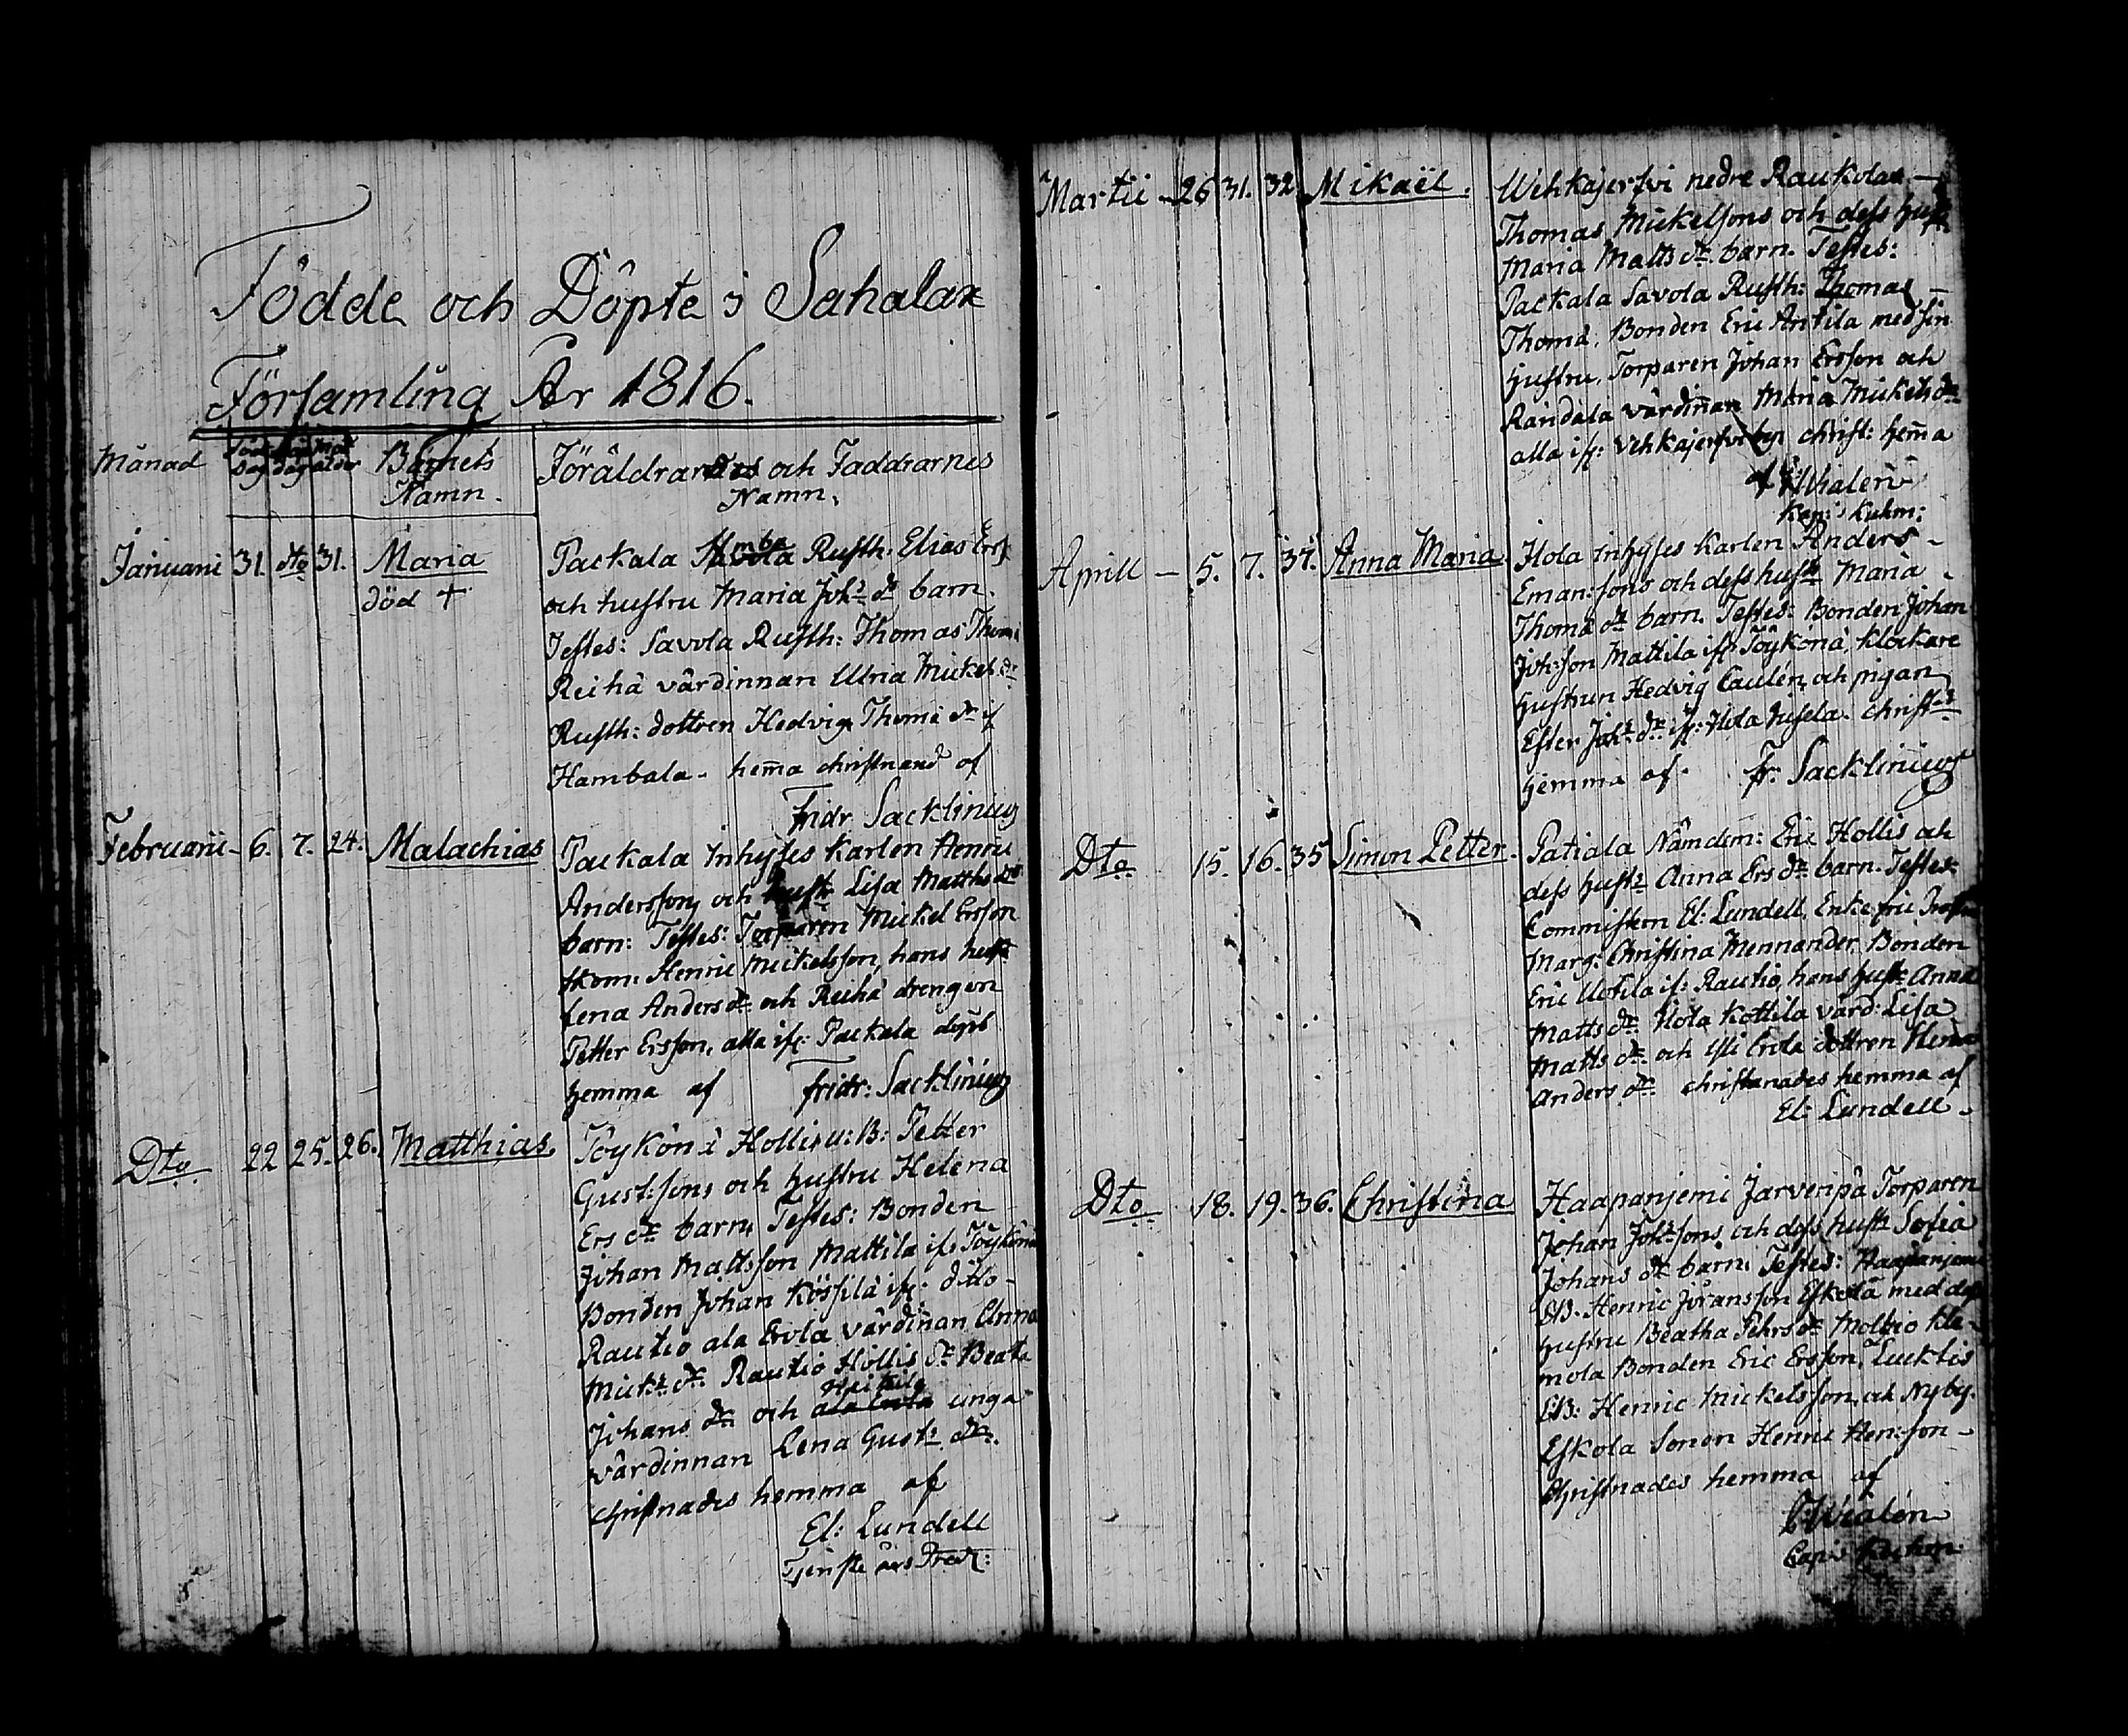 Födde och Döpte i Sahalax
Församling År 1816.
Månad Föd Döp Mod
Dag dag ålder Barnets Föräldrarnes och Faddrarnes
Namn. Namn.
Januarii 31. dto 31. Maria
död +
Packala Hambala Rusth: Elias Ers
och hustru Maria Joh:s dr barn.
Testes: Savola Rusth: Thomas Thom
Reihä värdinnan Ulria Mickels dr
Rusth: dottren Hedvig Thomä dr if
Hambala - hem̄a christnand af
Fridr Sacklinius
Februarii - 6. 7. 24. Malachias
Packala Inhyses Karlen Henric
Anderssons och hustr Lisa Matths drs
barn: Testes: Torparen Mickel Ersson
skom. Henric Mickelsson, hans hustr
Lena Anders dr och Reihä drengen
Petter Ersson, alla ifr: Packala döpt
hemma af Fridr: Sacklinius
Dto 22 25. 26. Matthias.
Töykönä Hollis U: B: Petter
Gust:sons och hustru Helena
Ers dr barn, Testes: Bonden
Johan Mattsson Mattila ifr Töykänä
Bonden Johan Kössilä ifr: ditto -
Rautio ala Erola värdin̄an Anna
Mick:s dr Rautio Hollis dr Beata
Johans dr och ala Erola Heikila unga
värdinnan Lena Gust:s dr.
christnades hemma af
El: Lundell
Tjenste års Pred:
Martii - 26 31. 32. Mikaël.
Wehkajerfvi nedre Raukolax -
Thomas Mickelsons och dess hustr
Maria Matts dr. barn. Testes:
Packala Savola Rusth: Thomas -
Thomä. Bonden Eric Antila med sin
hustru, Torparen Johan Ersson och
Randala värdin̄an Maria Mickels dr
alla ifr: Vehkajerfvi by christ: hem̄a
af Whalen
Kap: Kuhm:
Aprill - 5. 7. 37. Anna Maria.
Ilola Inhyses Karlen Anders -
Eman:sons och dess hustr Maria
Thomä dr barn. Testes: Bonden Johan
Joh:son Mattila ifr Töykönä, klockare
hustrun Hedvig Caulén, och pigan
Ester Joh:s dr ifr: Ilola Jusela. christ:s
hemma af Fr: Sacklinius
Dto 15. 16. 35 Simon Petter.
Patiala Nämdem: Eric Hollis och
dess hustr Anna Ers dr barn. Testes:
Commistern El: Lundell, Enkefru
Marg: Christina Mennander, Bonden
Eric Uotila if: Rautio, hans hustr Anna
Matts dr. Ilola Kottila värd: Lisa
Matts dr. och Erola dottren
Anders dr christnades hemma af
El: Lundell.
Dto 18. 19. 36. Christina
Haapanjemi Jarvenpä Torparen
Johan Joh:s sons och dess hustr Sofia
Johans dr barn. Testes: Haapanjemi
UB. Henric Jöransson Eskola med dess
hustru Beatha Pehrs dr Moltio Kle-
mola Bonden Eric Ersson, Lucklis
UB: Henric Mickelsson, och Nyby.
Eskola Sonen Henric Hen:son -
Christnades hemma af
C: Wialén
Cap: